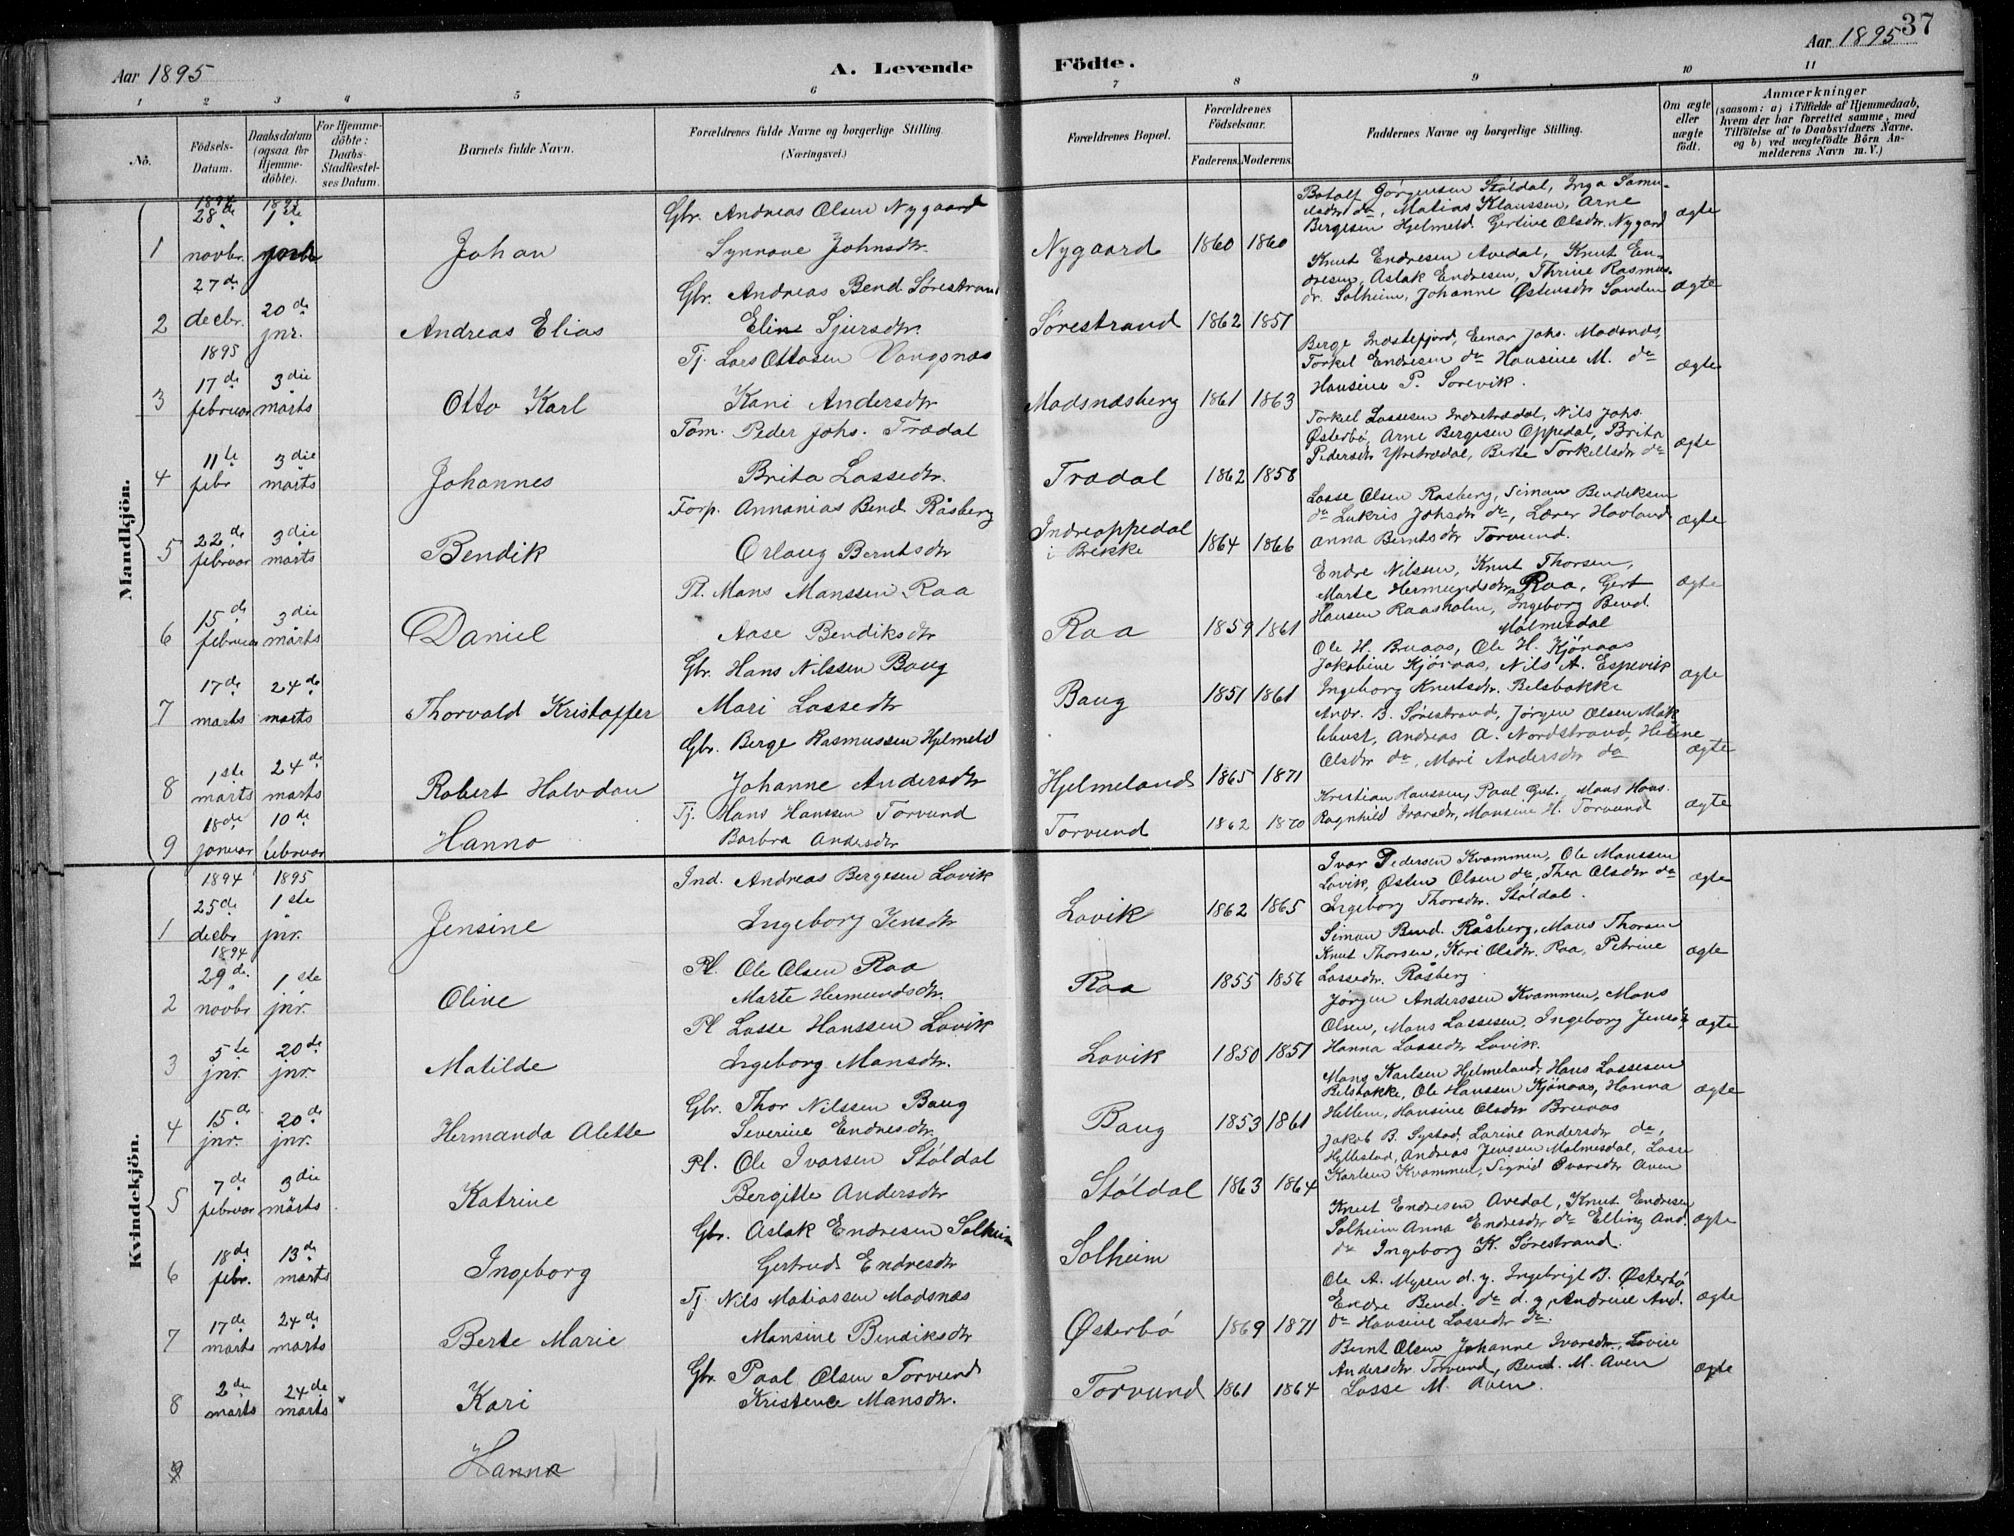 37
Aar 1895
A. Levende
Födte.
Aar 1895
1 2 3 4 5 6 7 8 9 10 11
No.
Födsels-Datum.
Daabsdatum (ogsaa for Hjemmedöbte).
For Hjemmedöbte: Daabs-Stadfæstelses Datum.
Barnets fulde Navn.
Forældrenes fulde Navne og borgerlige Stilling. (Næringsvei.)
Forældrenes Bopæl.
Forældrenes Födselsaar.
Faderens. Moderens.
Faddernes Navne og borgerlige Stilling.
Om ægte eller uægte födt.
Anmærkninger
(saasom: a) i Tilfælde af Hjemmedaab, hvem der har forrettet samme, med Tilföielse af to Daabsvidners Navne. og b) ved uægtefödte Börn Anmelderens Navn m. V.)
Mandkjön.
1 1894 28de novbr. 1ste Johan Gbr. Andreas Olsen Nygaard
Synnøve Johnsdtr. Nygaard 1860 1860
Botolf Jørgensen Støldal, Inga Samu-
elsdtr do, Matias Klaussen, Arne
Bergesen Hjelmeld. Gertine Olsdtr. Nygaard ægte
2 27de decbr. 20de jnr. Andreas Elias Gbr. Andreas Bend. Sørestrand
Eline Sjursdtr. Sørestrand 1862 1851
Knut Endresen Avedal, Knut En-
dresen, Aslak Endresen, Thrine Rasmus-
dr. Solheim, Johanne Østensdtr Sanden ægte
3 1895 17de februar 3die marts Otto Karl Tj. Lars Ottosen Vangsnæs
Kari Andersdtr Madsnæsberg 1861 1863
Berge Indstefjord, Einar Johs. Madsnæs,
Torkel Endresen do Hansine M. do
Hansine P. Sørevik. ægte
4 11te febr 3die marts Johannes Tøm. Peder Johs. Trædal
Brita Lassedtr. Trædal 1862 1858
Torkel Lassesen Indretrædal, Nils Johs.
Østerbø, Arne Bergesen Oppedal, Brita
Pedersdtr Ytretrædal, Berte Torkelsdtr do ægte
5 22de februar 3die marts Bendik Forp. Annanias Bend. Råsberg
Orlaug Berntsdtr Indreoppedal i Brekke 1864 1866
Lasse Olsen Råsberg, Simon Bendiksen
do Lukris Johsdtr do, Lærer Hovland
Anna Berntsdtr Torvund. ægte
6 15de februar 3die marts Daniel Pl. Mans Manssen Raa
Aase Bendiksdtr Raa 1859 1861
Endre Nilssen, Knut Thorsen,
Marte Hermundsdtr Raa, Gert
Hansen Raasholm, Ingeborg Bend.
Malmesdal ægte
7 17de marts 24de marts Thorvald Kristoffer Gbr. Hans Nilssen Baug
Mari Lassedtr Baug 1851 1861
Ole H. Bruaas, Ole H. Kjønaas
Jakobine Kjønaas, Nils A. Espevik
Ingeborg Knutsdtr. Belsbakke ægte
8 1ste marts 24de marts Robert Halvdan Gbr. Berge Rasmussen Hjelmeld
Johanne Andersdtr Hjelmeland 1865 1871
Andr. B. Sørestrand, Jørgen Olsen Mak-
Andreas A. Nordstrand, Helene
Olsdtr do, Mari Andersdtr do ægte
9 18de januar 10de februar Hanna Tj. Hans Hanssen Torvund
Barbra Andersdtr Torvund 1862
Kristian Hanssen, Paul Mans Hans.
Ragnhild Ivarsdtr, Mansine H. Torvund ægte
Kvindekjön.
1 1894 25de decbr 1895 1ste jnr. Jensine Ind. Andreas Bergesen Lavik
Ingeborg Jensdtr Lavik 1862 1865
Ivar Pedersen Kvammen, Ole Manssen
Lavik, Østen Olsen do, Thea Olsdtr do
Ingeborg Thorsdtr. Støldal. ægte
2 1894 29de novbr 1ste jnr. Oline Pl. Ole Olsen Raa
Marte Hermundsdtr. Raa 1855 1856
Simon Bend. Råsberg, Mans Thorsen
Knut Thorsen, Kari Olsdtr. Raa, Petrine
Lassedtr. Råsberg ægte
3 5te jnr. 20de jnr. Matilde Pl Lasse Hanssen Lavik
Ingeborg Mansdtr. Lavik 1850 1851
Jørgen Anderssen Kvammen, Mons
Olsen, Mans Lassesen, Ingeborg Jensdtr
Hanna Lassedtr Lavik. ægte
4 15de jnr. 20de jnr. Hermanda Alette Gbr. Thor Nilssen Baug
Severine Endresdtr. Baug 1853 1861
Mons Karlsen Hjelmeland, Hans Lassesen
Belsbakke, Ole Hanssen Kjønaas, Hanna
Hillem, Hansine Olsdtr Bruaas ægte
5 7de februar 3die marts Katrine Pl. Ole Ivarsen Støldal
Bergitte Andersdtr Støldal 1863 1864
Jakob B. Systad, Larine Andersdtr do,
Hyllestad, Andreas Jenssen Malmesdal, Lasse
Karlsen Kvammen, Sigrid Ivarsdtr Aven
6 18de febr. 13de marts Ingeborg Gbr. Aslak Endresen Solheim
Gertrud Endresdtr Solheim
Knut Endresen Avedal, Knut Endresen
Solheim Anna Endresdtr do Elling And.
do Ingeborg K. Sørestrand. ægte
7 17de marts 24de marts Berte Marie Tj. Nils Matiassen Madsnæs
Mansine Bendiksdtr Østerbø 1869 1871
Ole A. Myren d. y. Ingebrigt B. Østerbø
Endre Bend. do d. y, Andrine And.
do Hansine Lassedtr do. ægte
8 2de marts 24de marts Kari Gbr. Paal Olsen Torvund
Kristence Mansdtr. Torvund 1861 1864
Bernt Olsen Johanne Ivarsdtr, Lovise
Andersdtr Torvund, Bend. M. Aven
Lasse M. Aven. ægte
9 Hanna